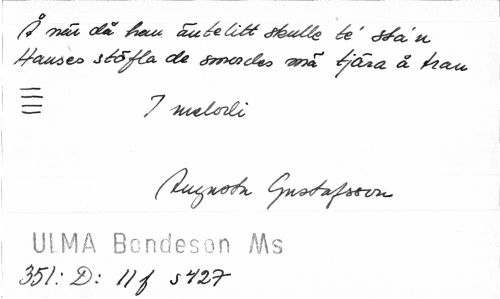 Å när då han äntelitt skulle te' sta'n
Hanses stöfla de smordes mä tjära å tran
7 melodi
Augusta Gustafsson
ULMA Bondeson Ms
351: D: 11 f s 427